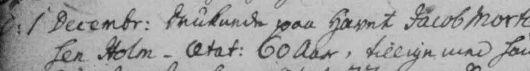 : 1 Decembr: drukende paa Havet Jacob Mort
sen Holm - Ætat: 60 Aar, tilligemed